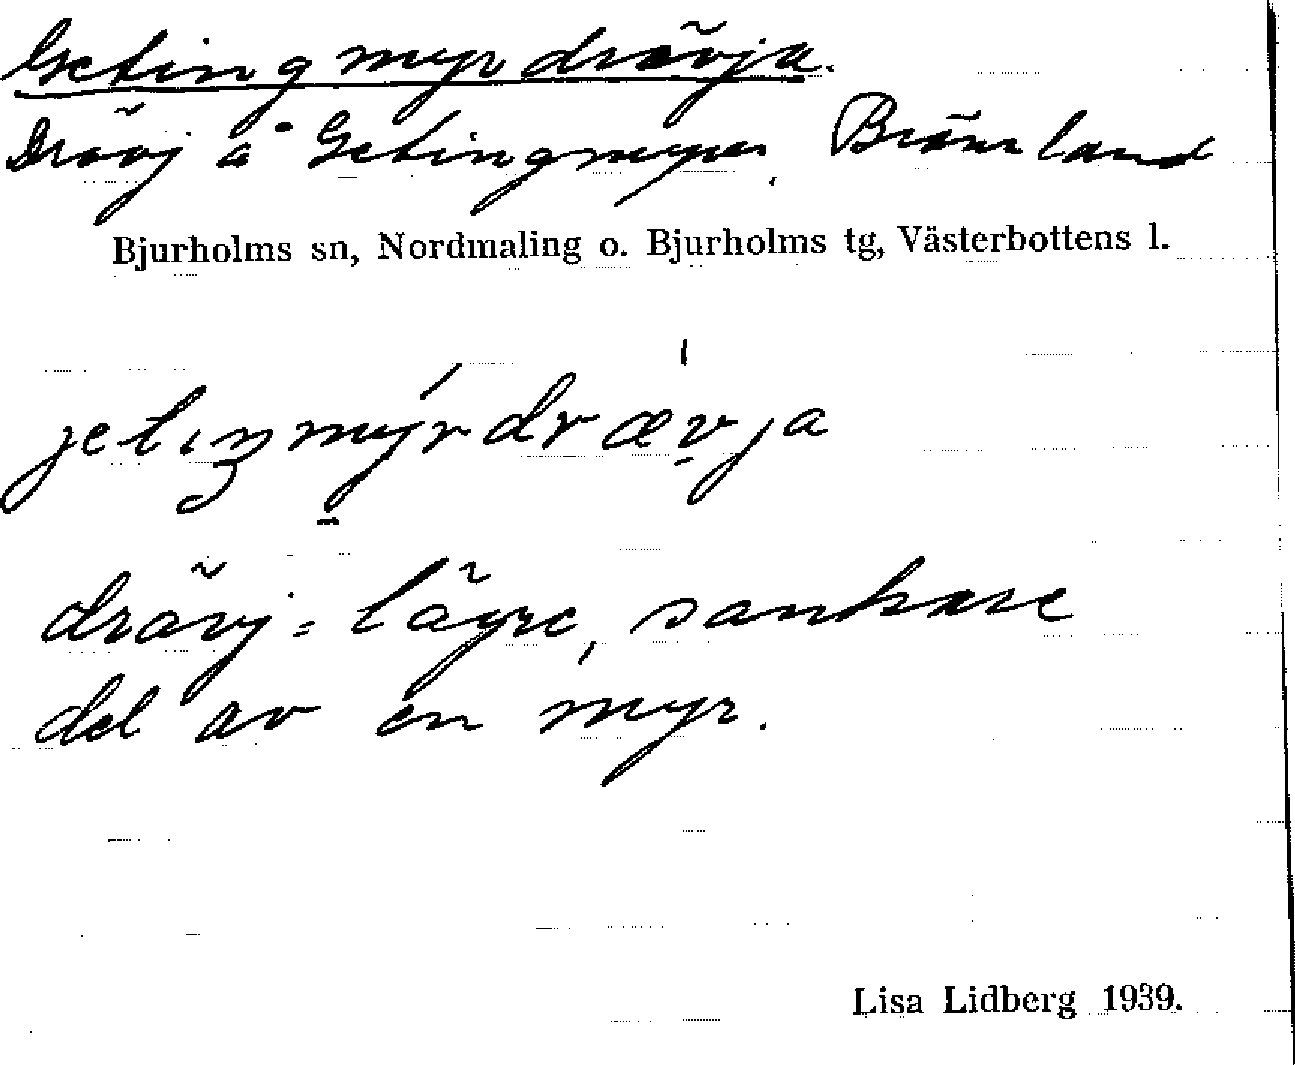 Getingmyrdrävja.
Drävj å Getingmyren. Brännland
Bjurholms sn, Nordmaling o. Bjurholms tg, Västerbottens l.
jetıŋmýrdrævja
drävj = lägre, sankare
del av en myr.
Lisa Lidberg 1939.